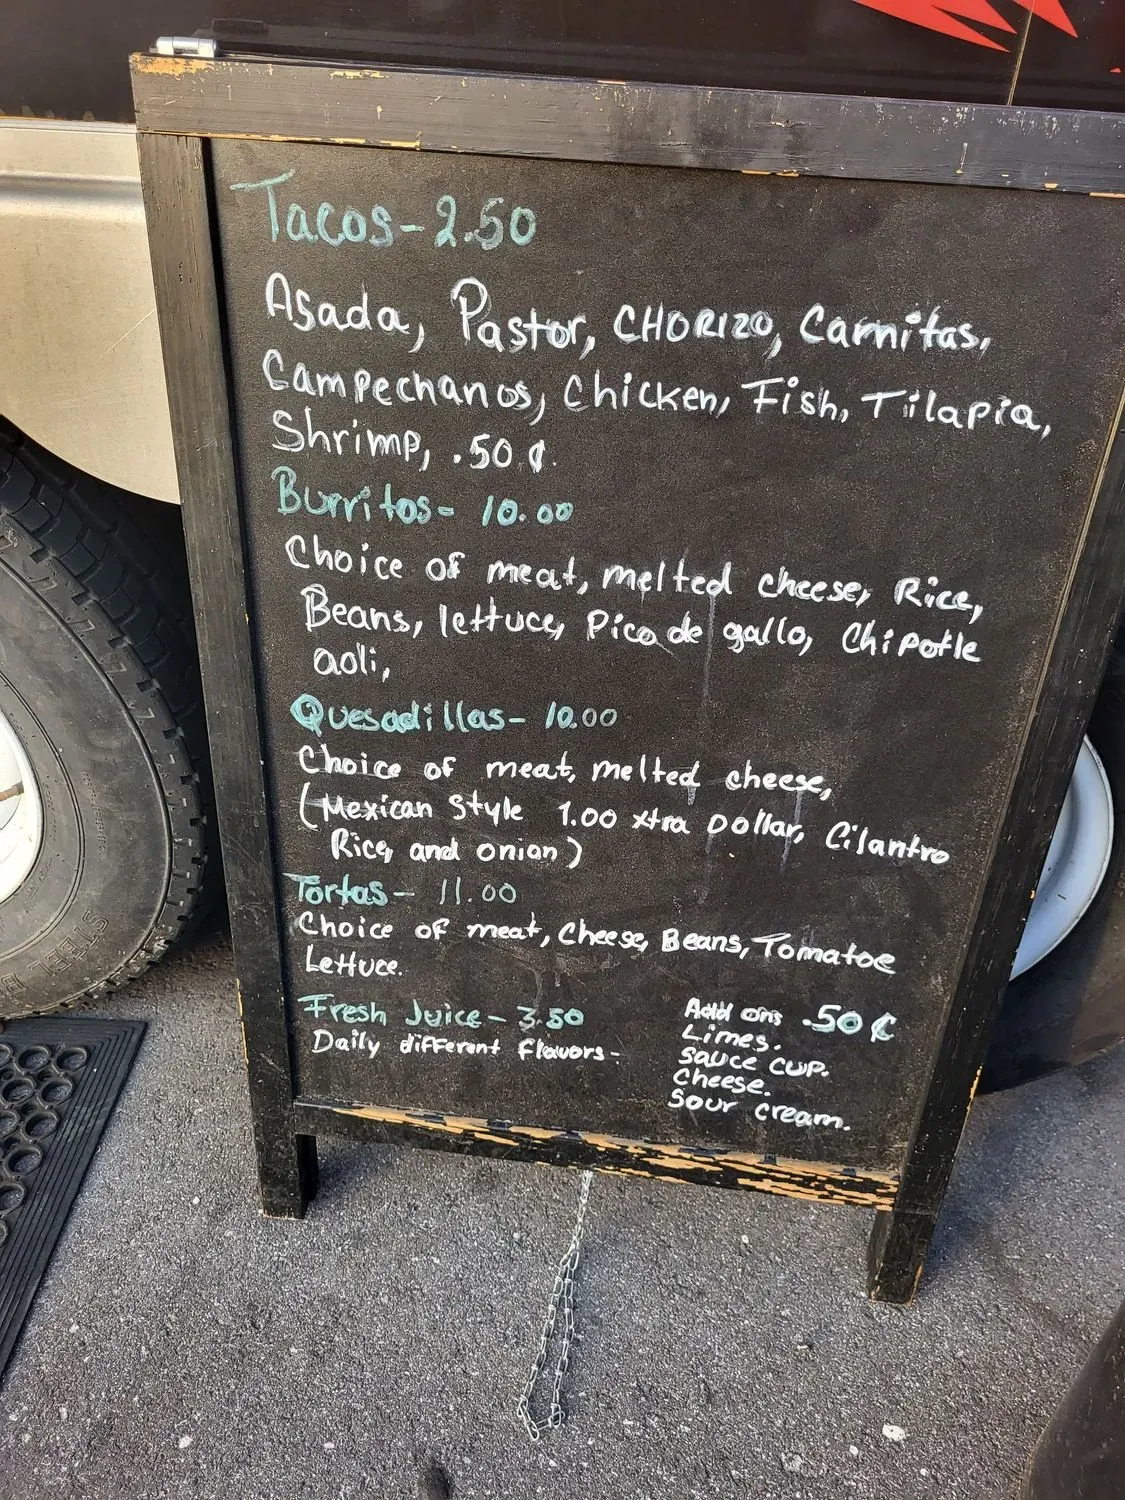 Tacos - 2.50
Asada, Pastor, CHORIZO, Carnitas,
Campechanos, Chicken, Fish, Tilapia,
Shrimp, .50 ¢.
Burritos - 10.00
Choice of meat, melted cheese, Rice,
Beans, lettuce, Pico de gallo, Chipotle
aoli,
Quesadillas - 10.00
Choice of meat, melted cheese,
(Mexican Style 1.00 xtra Dollar, Cilantro
Rice, and onion)
Tortas - 11.00
Choice of meat, Cheese, Beans, Tomatoe
Lettuce.
Fresh Juice - 3.50
Daily different flavors -
Add ons .50 ¢
Limes.
Sauce cup.
Cheese.
Sour cream.
STEEL